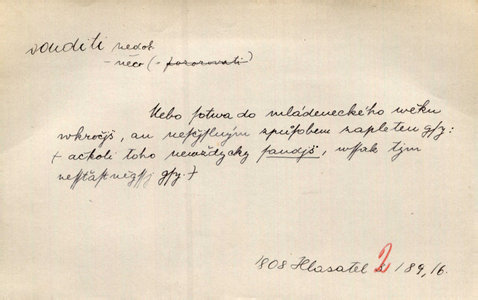 souditi nedok
- něco (- pozorovati)
Nebo sotwa do mládeneckého wěku
wkročjš, an nesčjslným způsobem zapleten gsy:
(ačkoli toho newždycky saudjš, wssak tjm
nessťastněgssj gsy.)
1808 Hlasatel 2 189,16.